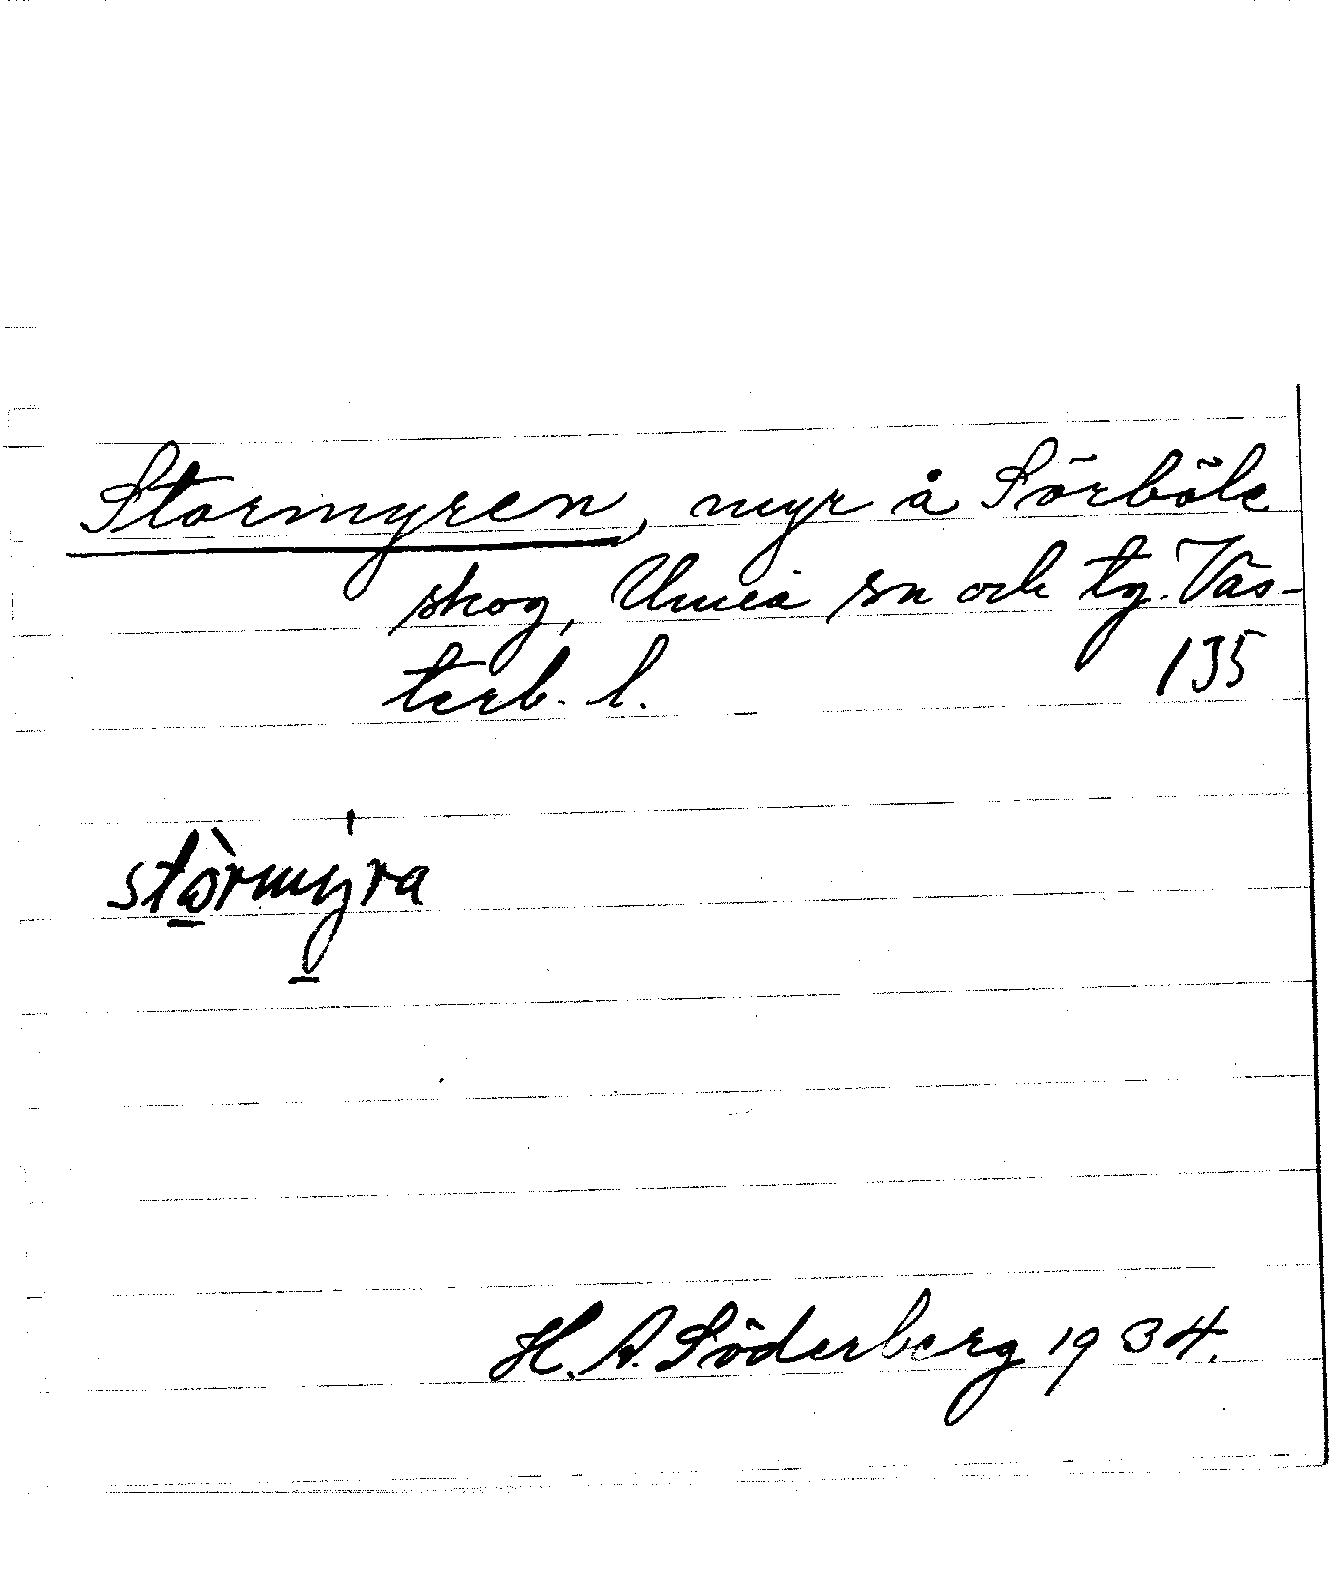 Stormyren, myr å Sörböle
skog, Umeå sn och tg. Väs-
terb. l. 135
stòrmyra
H. A. Söderberg 1934.